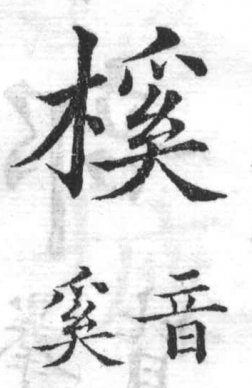 榽
音奚